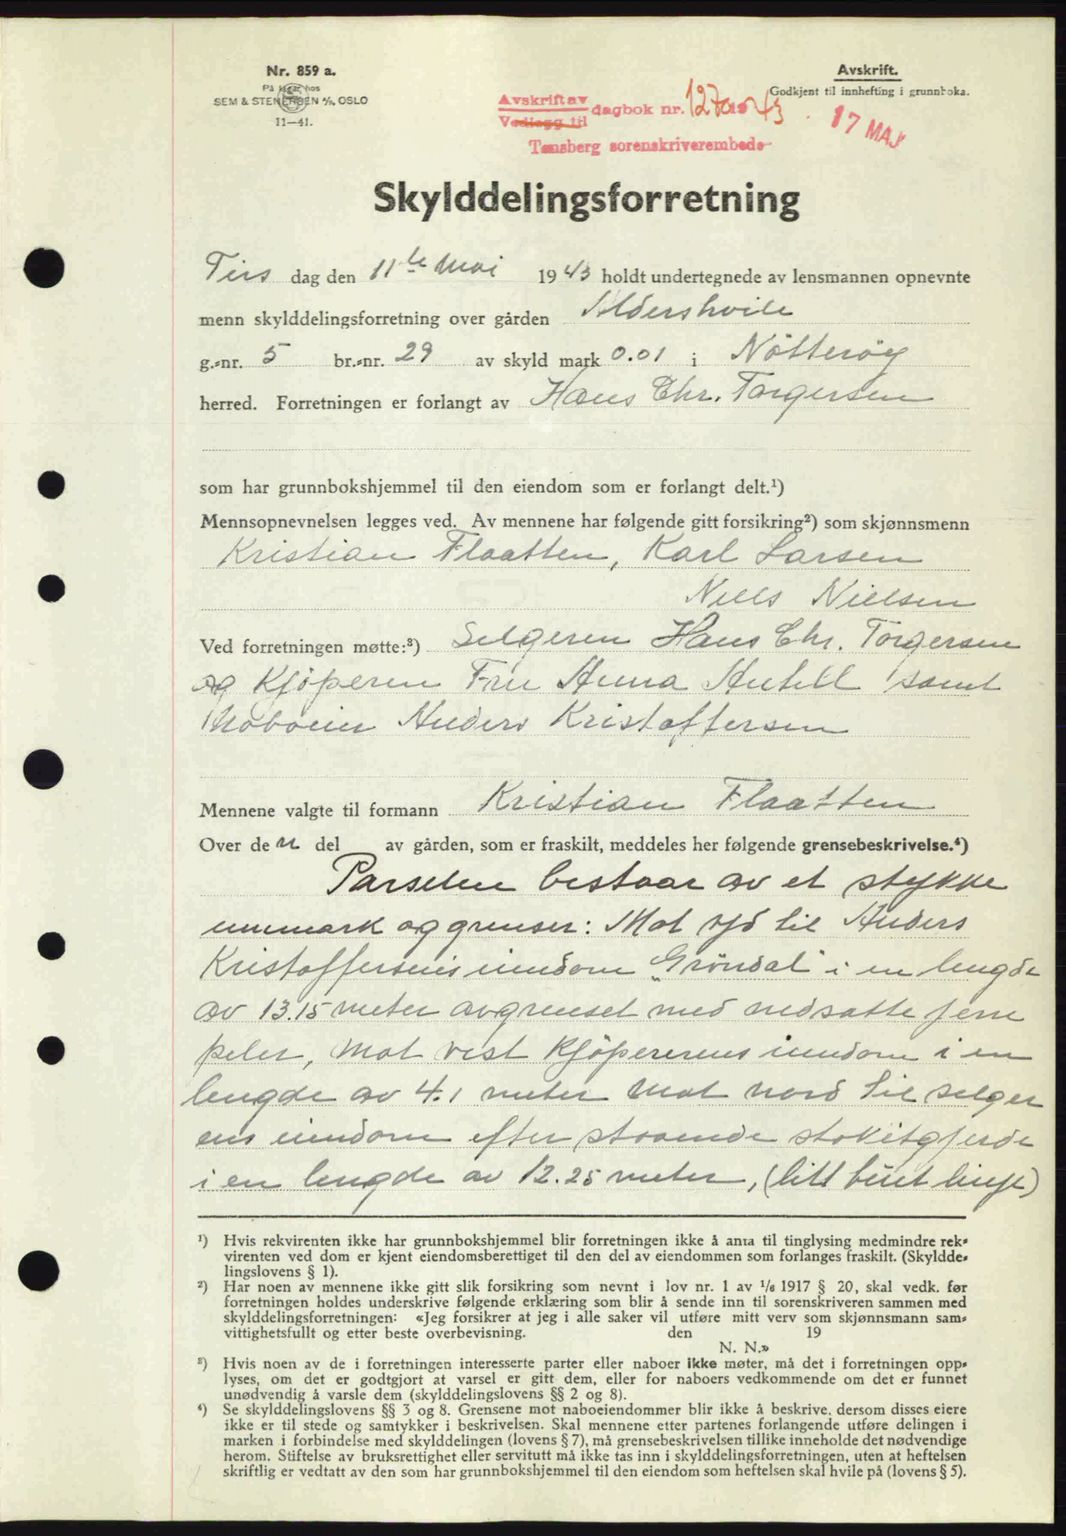 Nr. 859 a.
På lager hos
SEM & STENERSEN A/S, OSLO
11—41.
Avskrift.
Godkjent til innhefting i grunnboka.
Avskrift av
Vedlegg til
dagbok nr. 1270 1943
17 MAI
Tønsberg sorenskriverembede
Skylddelingsforretning
Tirs dag den 11te Mai 1943 holdt undertegnede av lensmannen opnevnte
menn skylddelingsforretning over gården Aldershvile
g.-nr. 5 br.-nr. 29 av skyld mark 0.01 i Nötteröy
herred. Forretningen er forlangt av Hans Chr. Torgersen
som har grunnbokshjemmel til den eiendom som er forlangt delt.¹)
Mennsopnevnelsen legges ved. Av mennene har følgende gitt forsikring²) som skjønnsmenn
Kristian Flaatten, Karl Larsen
Niels Nielsen
Ved forretningen møtte:³) Selgeren Hans Chr. Torgersen
og Kjöperen Fru Anna Antell samt
Naboeier Anders Kristoffersen
Mennene valgte til formann Kristian Flaatten
Over den del av gården, som er fraskilt, meddeles her følgende grensebeskrivelse.⁴)
Parselen bestaar av et stykke
innmark og grenser: Mot syd til Anders
Kristoffersens iendom "Gröndal" i en lengde
av 13.15 meter avgrenset med nedsatte jern
peler, mot vest Kjöperens iendom i en
lengde av 4.1 meter mot nord til selger
ens iendom efter staaende stakitgjerde
i en lengde av 12.25 meter, (litt buet linje)
¹) Hvis rekvirenten ikke har grunnbokshjemmel blir forretningen ikke å anta til tinglysing medmindre rek-
virenten ved dom er kjent eiendomsberettiget til den del av eiendommen som forlanges fraskilt. (Skyldde-
lingslovens § 1).
²) Har noen av mennene ikke gitt slik forsikring som nevnt i lov nr. 1 av 1/6 1917 § 20, skal vedk. før
forretningen holdes underskrive følgende erklæring som blir å sende inn til sorenskriveren sammen med
skylddelingsforretningen: «Jeg forsikrer at jeg i alle saker vil utføre mitt verv som skjønnsmann sam-
vittighetsfullt og etter beste overbevisning. den 19
N. N.»
³) Hvis noen av de i forretningen interesserte parter eller naboer ikke møter, må det i forretningen opp-
lyses, om det er godtgjort at varsel er gitt dem, eller for naboers vedkommende om det er funnet
unødvendig å varsle dem (skylddelingslovens §§ 2 og 8).
⁴) Se skylddelingslovens §§ 3 og 8. Grensene mot naboeiendommer blir ikke å beskrive, dersom disses eiere
ikke er til stede og samtykker i beskrivelsen. Skal mennene etter partenes forlangende utføre delingen i
marken i forbindelse med skylddelingen (lovens § 7), må grensebeskrivelsen tillike inneholde det nødvendige
herom. Stiftelse av bruksrettighet eller servitutt må ikke tas inn i skylddelingsforretningen, uten at heftelsen
skriftlig er vedtatt av den som har grunnbokshjemmel til den eiendom som heftelsen skal hvile på (lovens § 5).